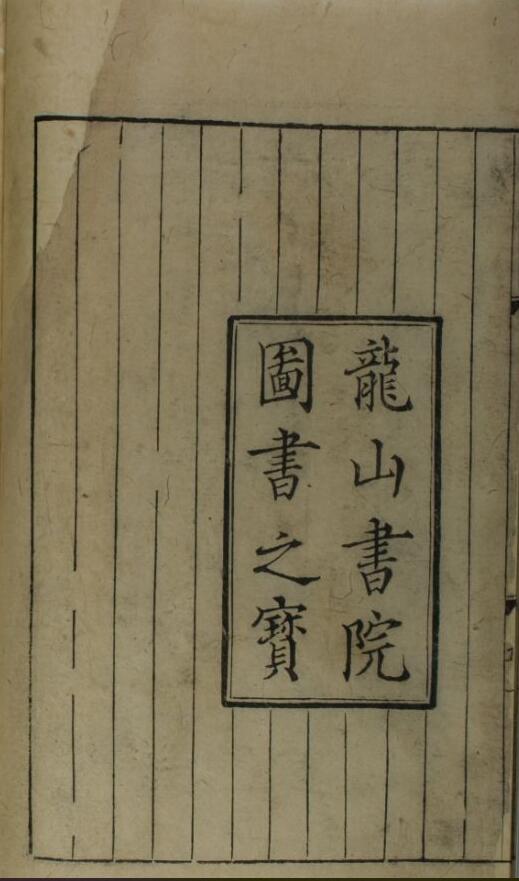 龍山書院
圖書之寶